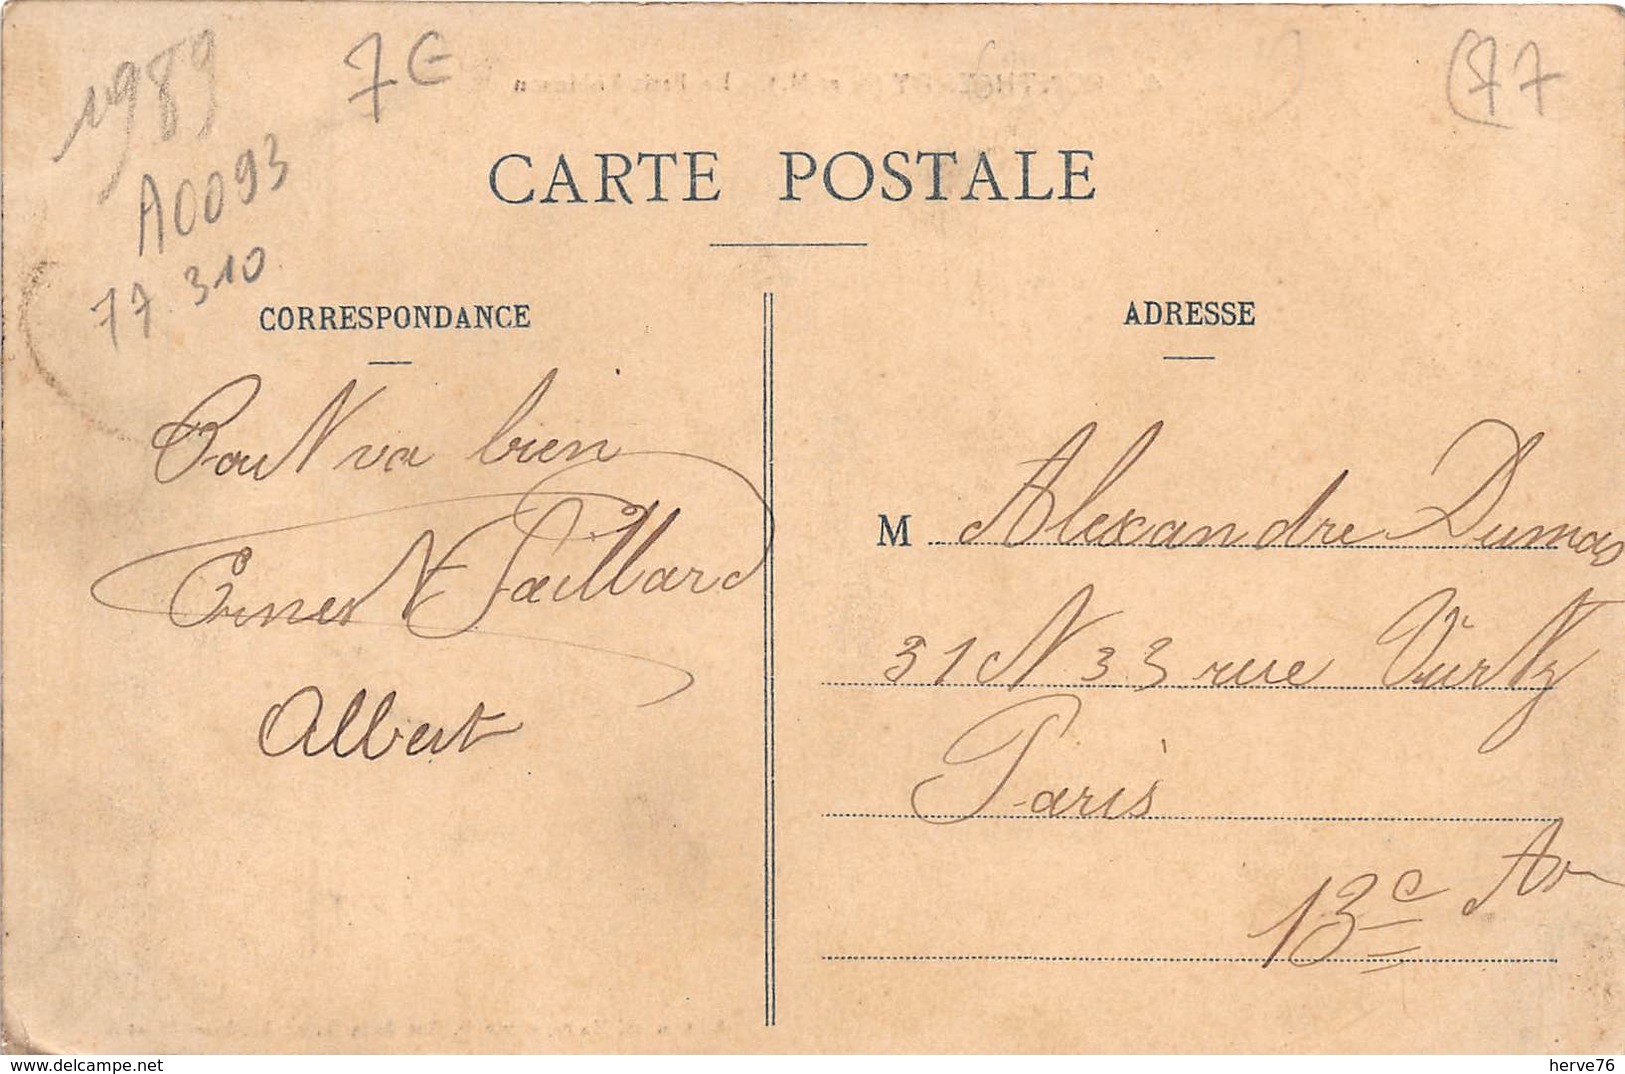 1989
7€
(77
A0093
77.310
CARTE POSTALE
CORRESPONDANCE
ADRESSE
Tout va bien
Ernest Gaillard
Albert
M Alexandre Dumas
31 et 33 rue Vurtz
Paris
13e Ar
www.delcampe.net
herve76